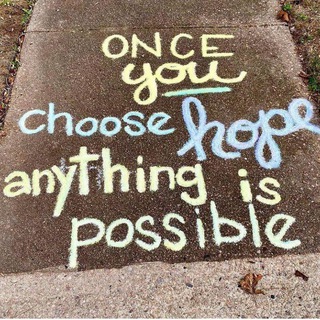 ONCE
you
choose hope
anything is
possible